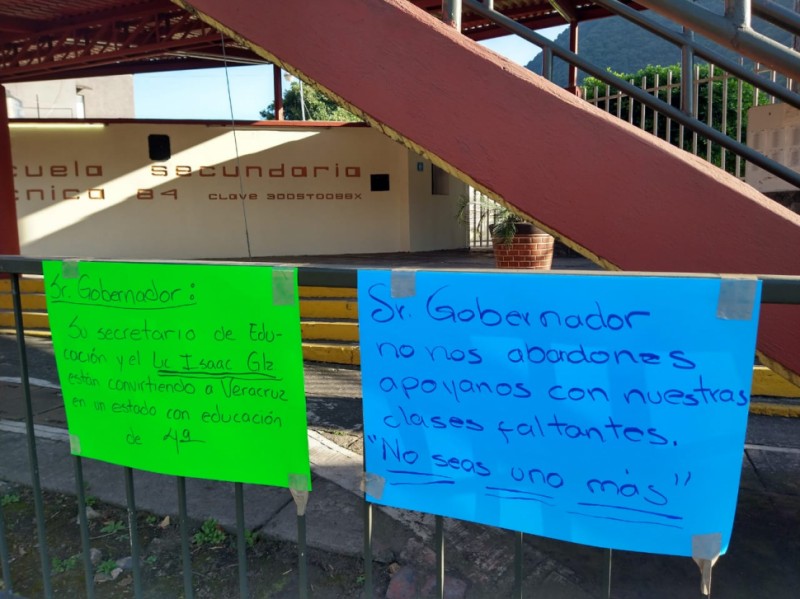 cuela secundaria
cnica 84 clave 30DST0086X
Sr. Gobernador:
Su secretario de Edu-
cación y el Lic Isaac Glz
están convirtiendo a Veracruz
en un estado con educación
de 4ª
Sr. Gobernador
no nos abardones
apoyanos con nuestras
clases faltantes.
"No seas uno más"